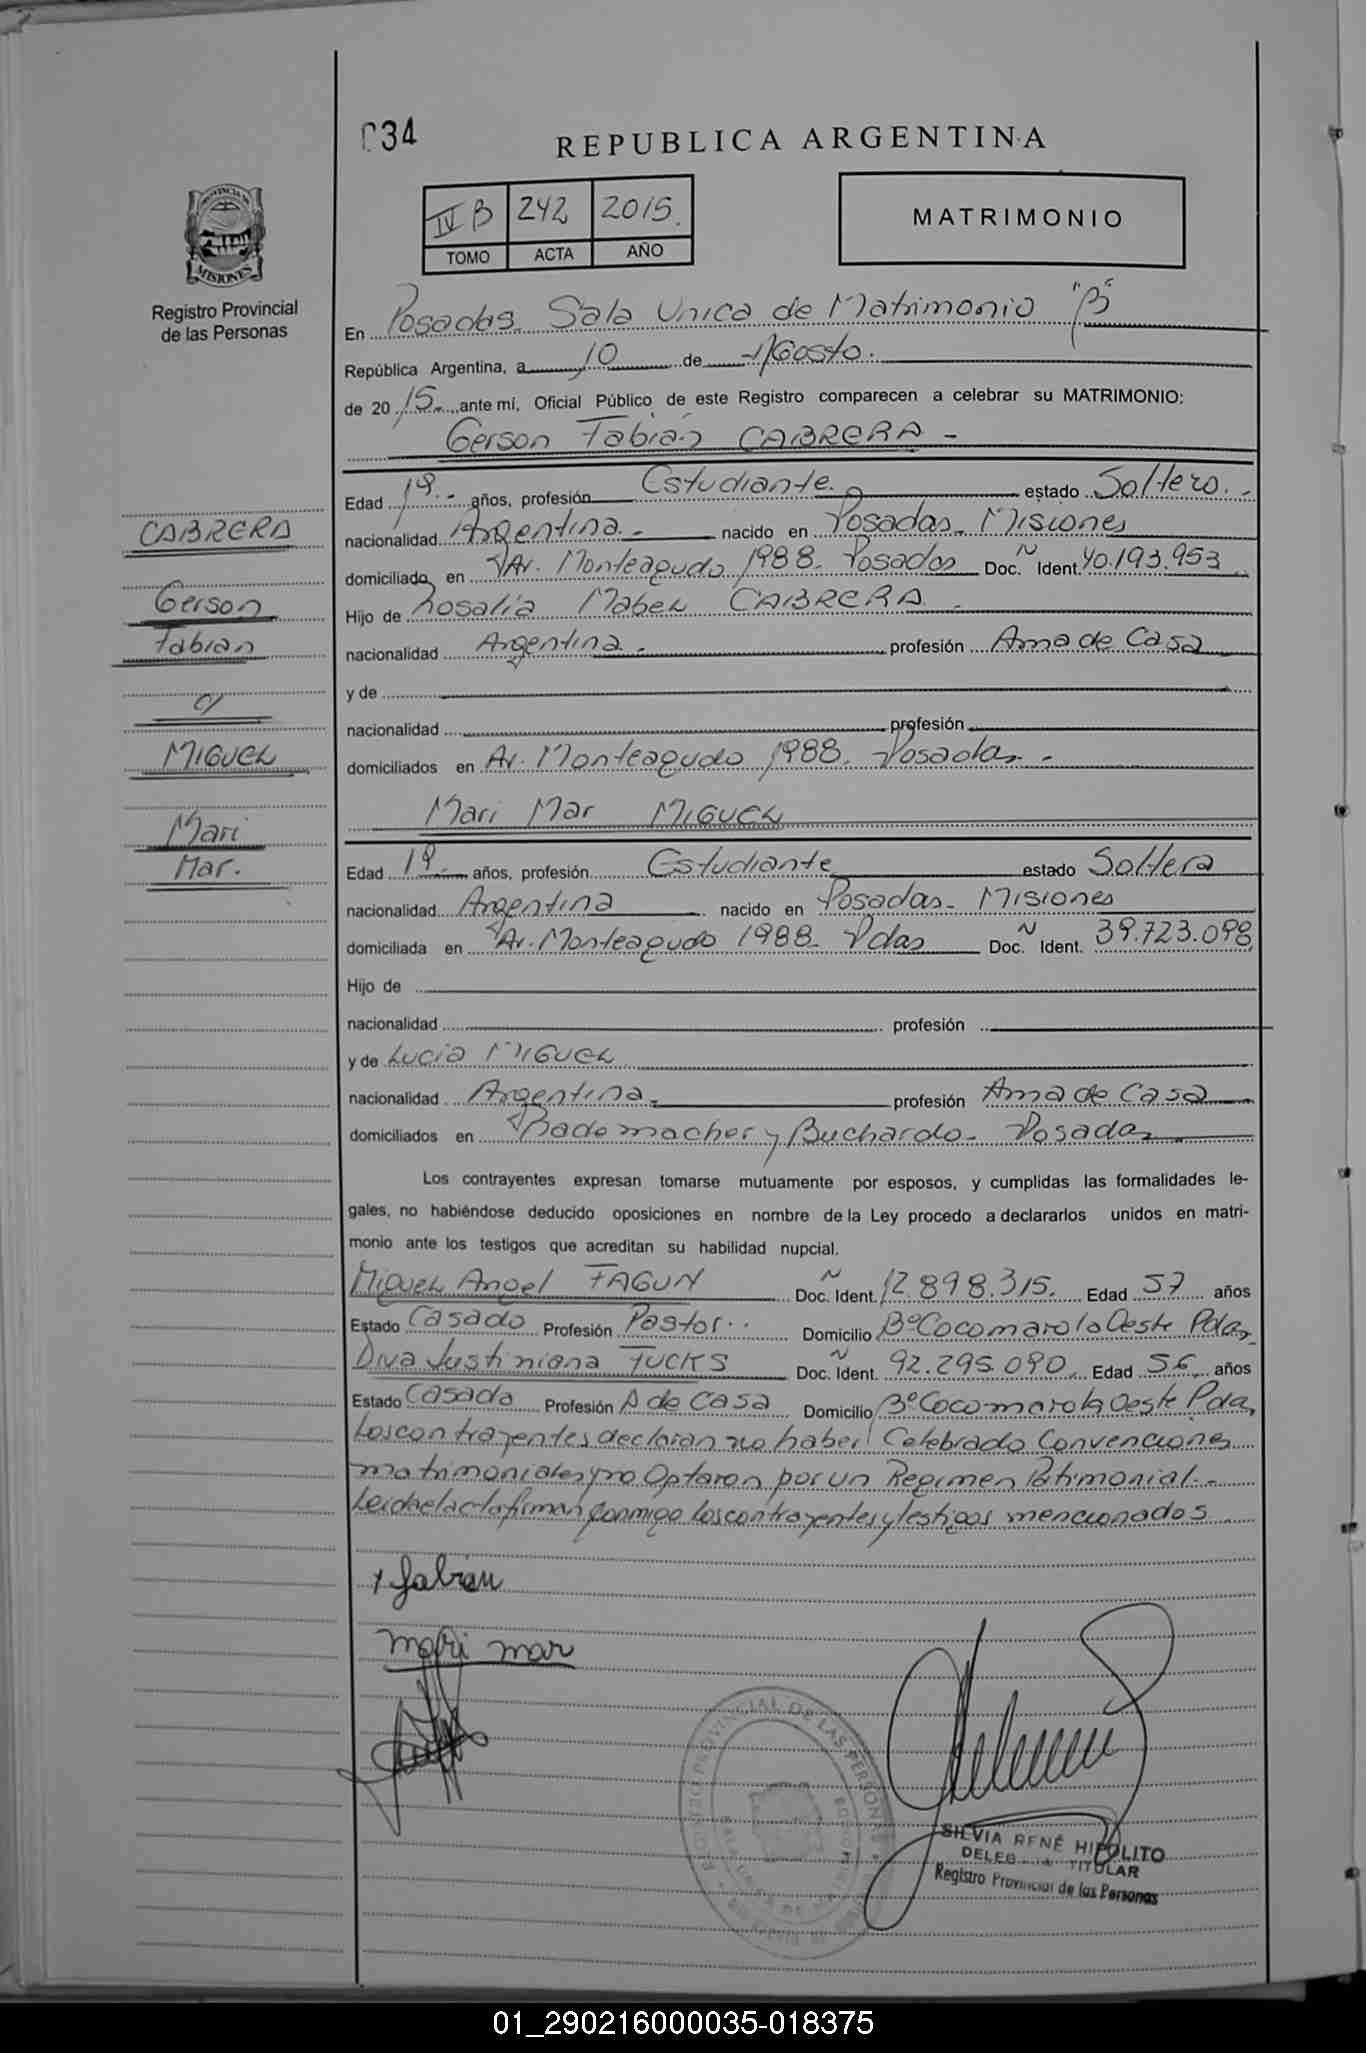 034
REPUBLICA ARGENTINA
IV B 242 2015.
TOMO ACTA AÑO
MATRIMONIO
PROVINCIA DE
MISIONES
Registro Provincial
de las Personas
En Posadas. Sala Unica de Matrimonio "B"
República Argentina, a 10 de Agosto.
de 20 15 ante mí, Oficial Público de este Registro comparecen a celebrar su MATRIMONIO:
Gerson Fabián CABRERA -
Edad 19.- años, profesión Estudiante. estado Soltero.-
nacionalidad Argentina.- nacido en Posadas - Misiones
domiciliado en Av. Monteagudo 1988. Posadas Doc. Ñ Ident. 40.193.953
Hijo de Rosalia Mabel CABRERA.
nacionalidad Argentina.- profesión Ama de Casa
y de
nacionalidad profesión
domiciliados en Av. Monteagudo 1988. Posadas.-
Mari Mar MIGUEL
Edad 19.- años, profesión Estudiante estado Soltera
nacionalidad Argentina nacido en Posadas - Misiones
domiciliada en Av. Monteagudo 1988 - Pdas Doc. Ñ Ident. 39.723.098
Hijo de
nacionalidad profesión
y de Lucia MIGUEL
nacionalidad Argentina.- profesión Ama de Casa
domiciliados en Rademacher y Buchardo - Posadas
Los contrayentes expresan tomarse mutuamente por esposos, y cumplidas las formalidades le-
gales, no habiéndose deducido oposiciones en nombre de la Ley procedo a declararlos unidos en matri-
monio ante los testigos que acreditan su habilidad nupcial.
Miguel Angel FAGUN Doc. Ñ Ident. 12.898.315. Edad 57 años
Estado Casado Profesión Pastor.. Domicilio Bº Cocomarola Oeste Pdas
Diva Justiniana FUCKS Doc. Ñ Ident. 92.295.090 Edad 56 años
Estado Casada Profesión A de Casa Domicilio Bº Cocomarola Oeste Pdas
Los contrayentes declaran no haber Celebrado Convenciones
matrimoniales y no Optaron por un Regimen Patimonial.-
Leida el acta firman conmigo los contrayentes y testigos mencionados
CABRERA
Gerson
Fabian
c/
MIGUEL
Mari
Mar.
x fabian
mari mar
REGISTRO PROVINCIAL DE LAS PERSONAS
SILVIA RENÉ HIPOLITO
TITULAR
Registro Provincial de las Personas
01_290216000035-018375